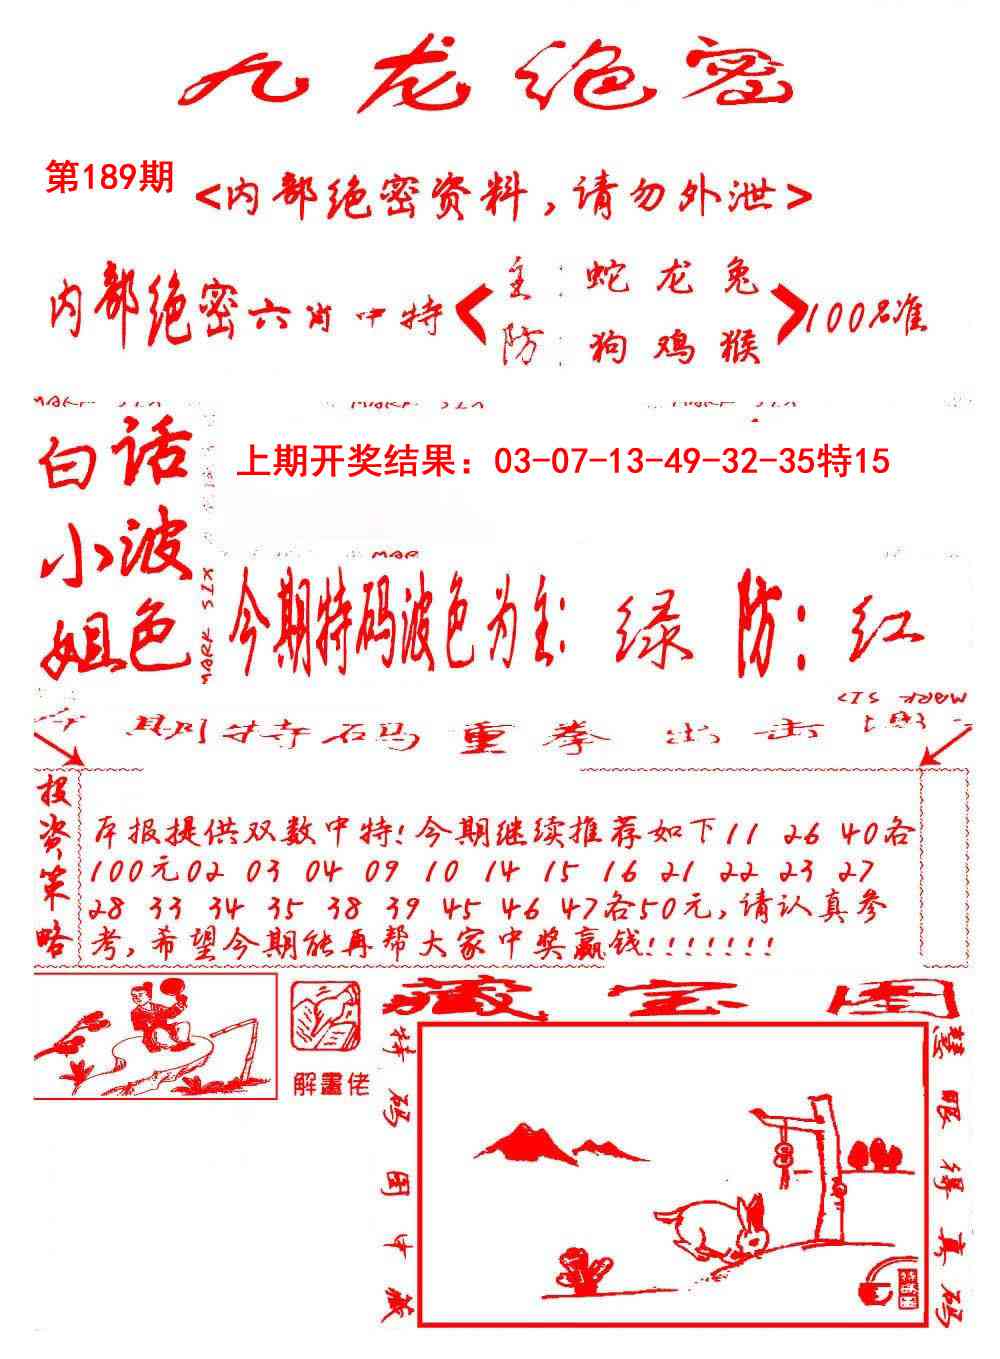 九龙绝密
第189期
<内部绝密资料,请勿外泄>
内部绝密六肖中特
主:蛇龙兔
防:狗鸡猴
100%准
MARK SIX
MARK SIX
MARK SIX
白话
小波
姐色
上期开奖结果：03-07-13-49-32-35特15
MAR
MARK SIX
今期特码波色为主:绿 防:红
MARK SIX
今期特码重拳出击
投资策略
本报提供双数中特!今期继续推荐如下11 26 40各
100元02 03 04 09 10 14 15 16 21 22 23 27
28 33 34 35 38 39 45 46 47各50元,请认真参
考,希望今期能再帮大家中奖赢钱!!!!!!!
解畫佬
藏宝图
特码图中藏
慧眼得真码